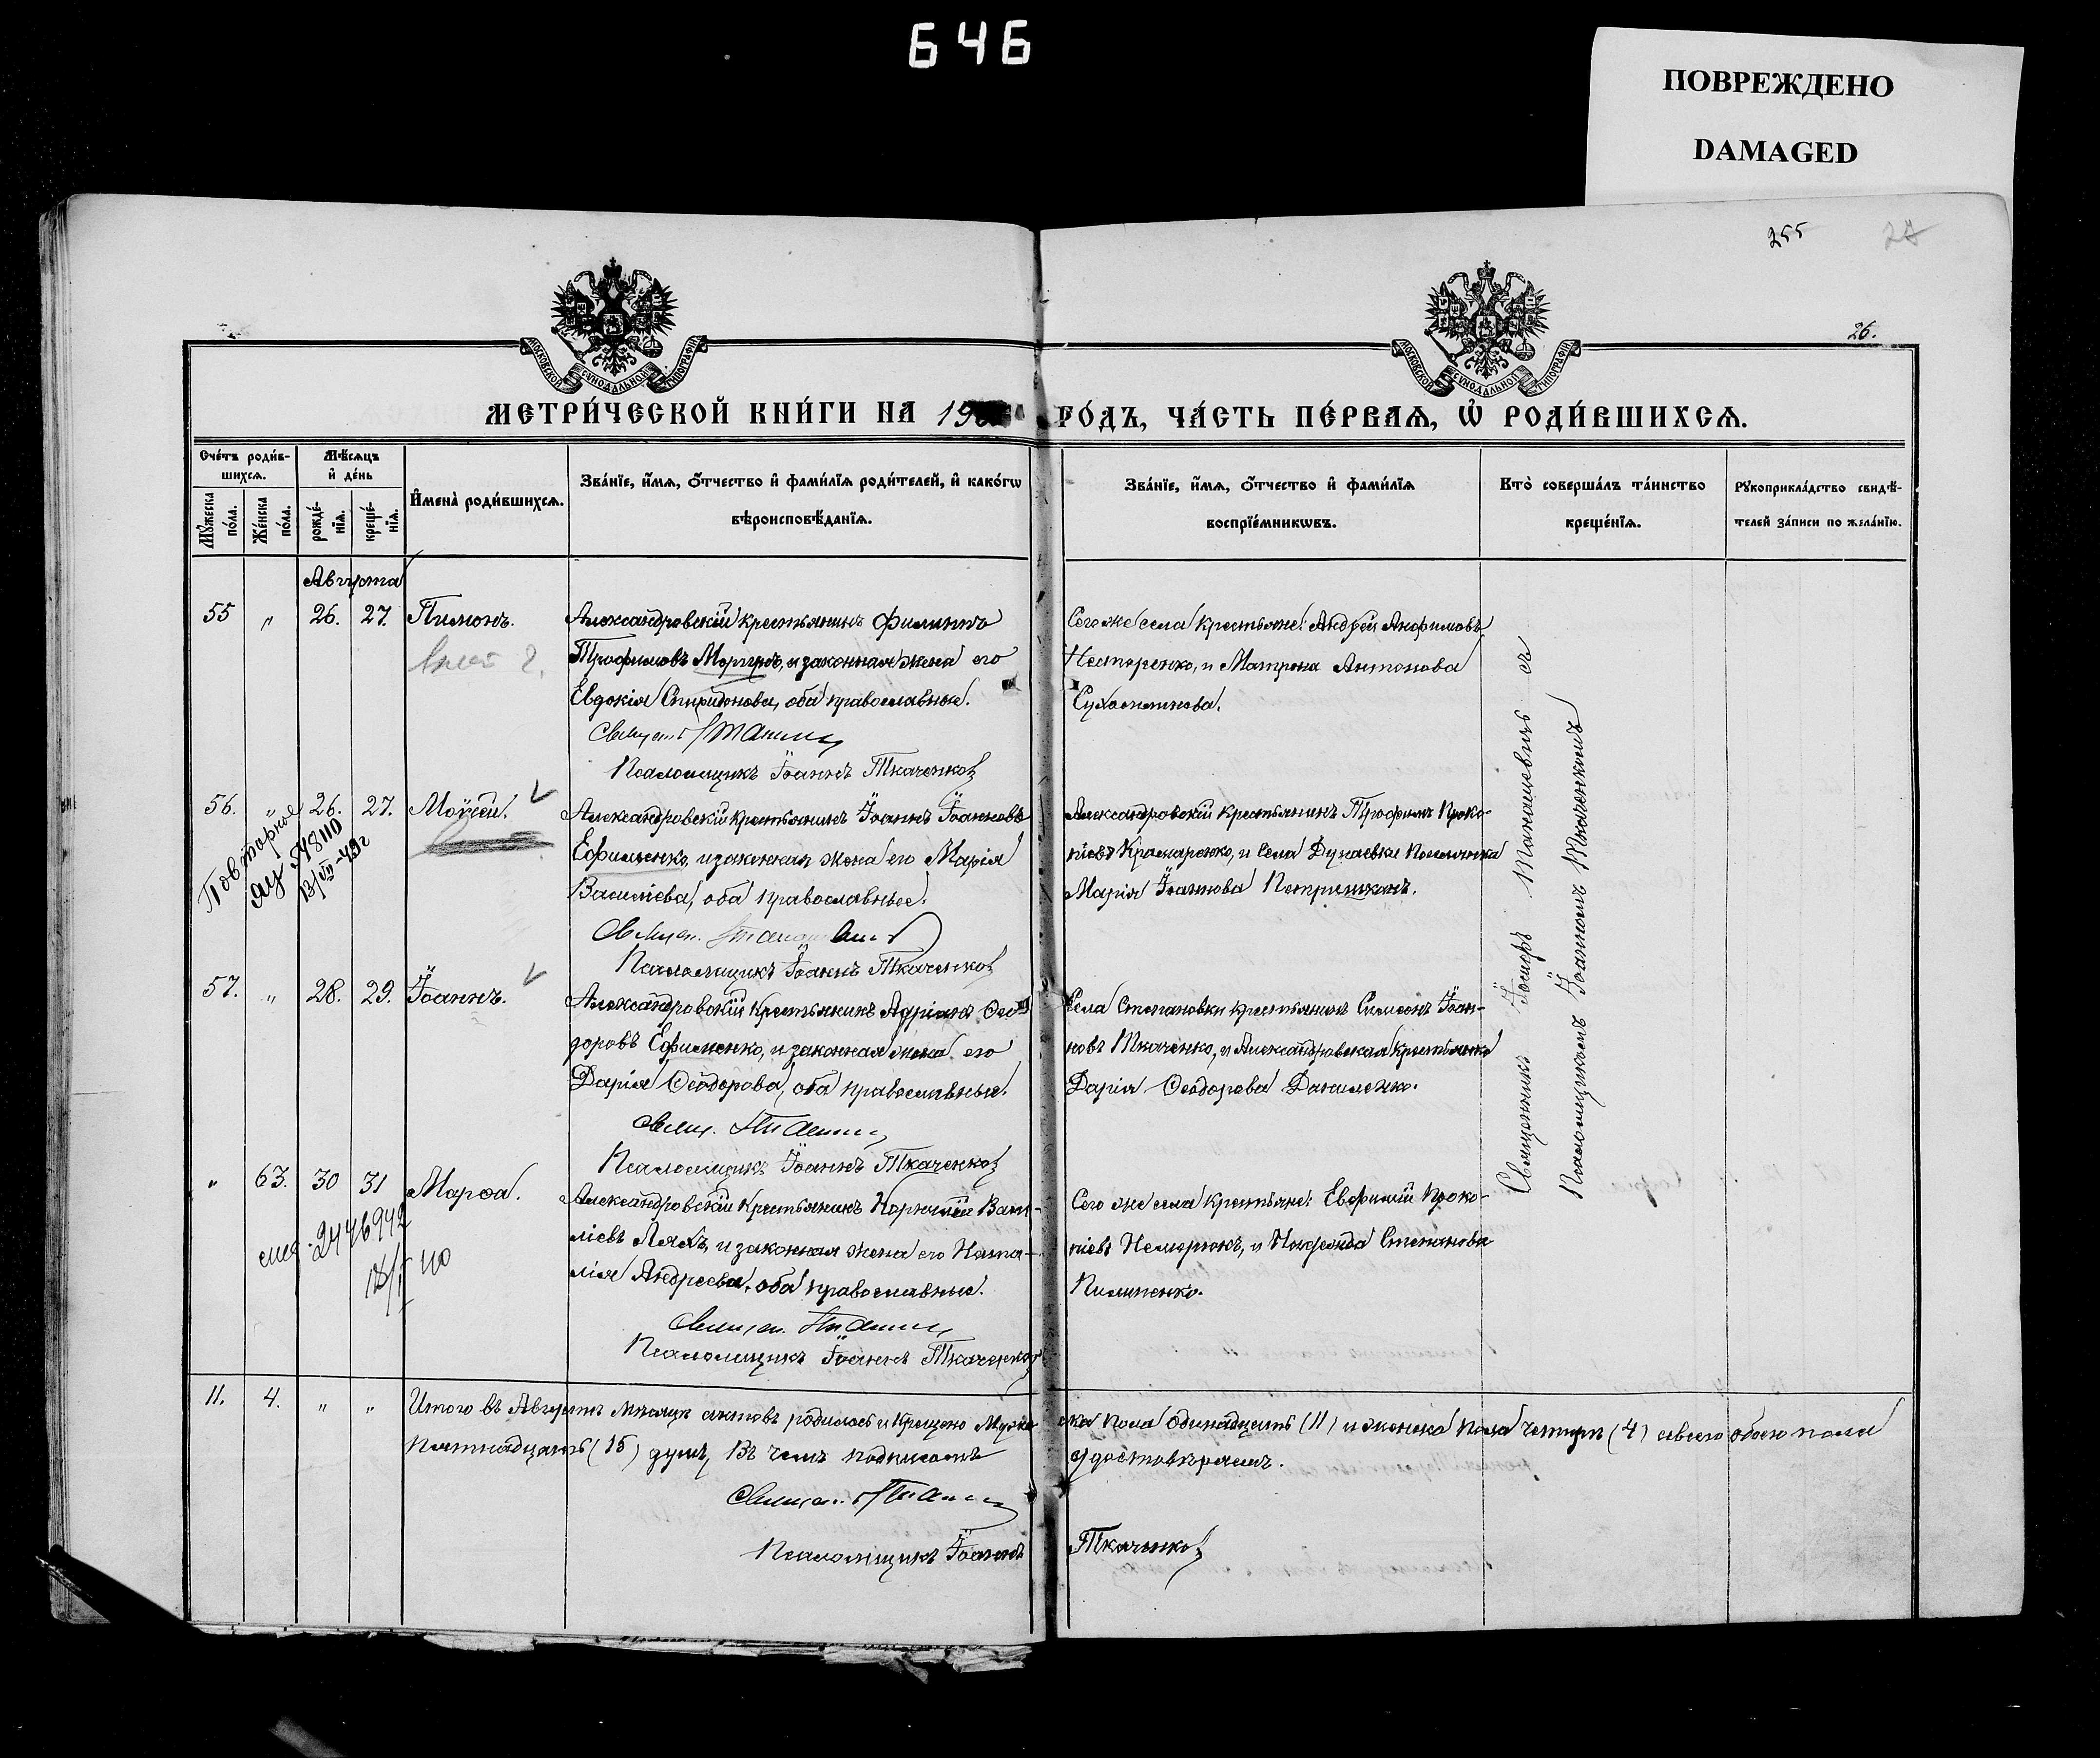 646
ПОВРЕЖДЕНО
DAMAGED
255
26.
МОСКОВСКОЙ СѴНОДАЛЬНОЙ ТИПОГРАФІИ
МОСКОВСКОЙ СѴНОДАЛЬНОЙ ТИПОГРАФІИ
МЕТРИ́ЧЕСКОЙ КНИ́ГИ НА 19
ГО́ДЪ, ЧА́СТЬ ПЕ́РВАЯ, Ѡ҆ РОДИ́ВШИХСЯ.
Сче́тъ роди́вшихся.
Мѹ́жеска по́ла.
Же́нска по́ла.
Мѣ́сяцъ и҆ де́нь
рожде́нїя.
креще́нїя.
И҆мена̀ роди́вшихся.
Зва́нїе, и҆́мя, ѻ҆́тчество и҆ фами́лїя роди́телей, и҆ како́гѡ
вѣроисповѣ́данїя.
Зва́нїе, и҆́мя, ѻ҆́тчество и҆ фами́лїя
воспрїе́мникѡвъ.
Кто̀ соверша́лъ та́инство
креще́нїя.
Рѹкоприкла́дство свидѣ́телей за́писи по жела́нїю.
Августа
55 " 26. 27. Пимонъ.
Александровскій крестьянинъ Филиппъ
Трофимовъ Моргунъ, и законная жена его
Евдокія Спиридонова, оба православные.
Священ.
Псаломщикъ Іоаннъ Ткаченко
Сего же села крестьяне: Андрей Анфимовъ
Нестеренко, и Матрона Антонова
Сухомлинова.
56. " 26. 27. Моѵсей.
Повторное
13/VII-49г
Александровскій крестьянинъ Іоаннъ Іоанновъ
Ефименко, и законная жена его Марія
Василіева, оба православные.
Священ.
Псаломщикъ Іоаннъ Ткаченко
Александровскій крестьянинъ Трофимъ Проко-
піевъ Крамаренко, и села Дунаевки
Марія Іоаннова
57. " 28. 29. Іоаннъ.
Александровскій крестьянинъ Адріанъ Ѳео-
доровъ Ефименко, и законная жена его
Дарія Ѳеодорова, оба православные.
Свящ.
Псаломщикъ Іоаннъ Ткаченко
Села Степановки крестьянинъ Симеонъ Іоан-
новъ Ткаченко, и Александровская крестьянка
Дарія Ѳеодорова Даниленко.
" 63. 30 31 Марѳа.
2446942
40
Александровскій крестьянинъ Корнилій Васи-
ліевъ Ляхъ, и законная жена его Ната-
лія Андреева, оба православные.
Священ.
Псаломщикъ Іоаннъ Ткаченко
Сего же села крестьяне: Евфимій Проко-
піевъ и Степанова
Пилипенко.
Священникъ Іосифъ Манашевичъ съ
Псаломщикомъ Іоанномъ Ткаченкомъ
11. 4. " " Итого въ Августѣ мѣсяцѣ актовъ родилось и крещено муже-
ска пола одинадцать (11) и женска пола четыре (4) а всего обоего пола
пятнадцать (15) душъ, въ чемъ подписомъ
удостовѣряемъ.
Священ.
Псаломщикъ Іоаннъ
Ткаченко